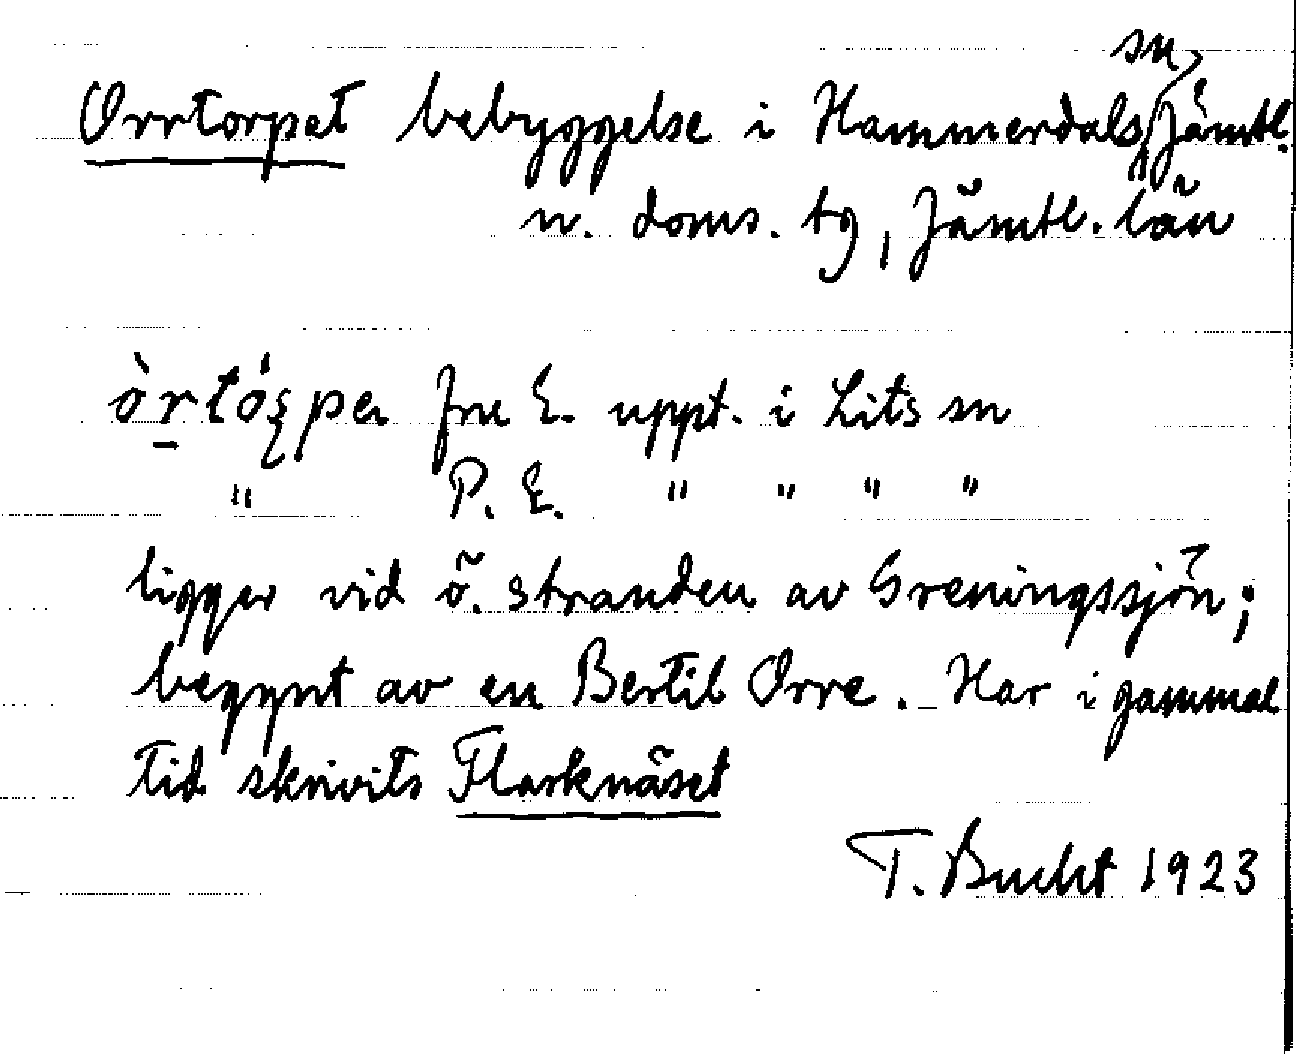 Orrtorpet bebyggelse i Hammerdals sn, Jämtl.
n. doms. tg, Jämtl. län
fru E. uppt. i Lits sn
" P. E. " " " "
ligger vid ö. stranden av Greningssjön;
begynt av en Bertil Orre. – Har i gammal
tid skrivits Flarknäset
T. Bucht 1923